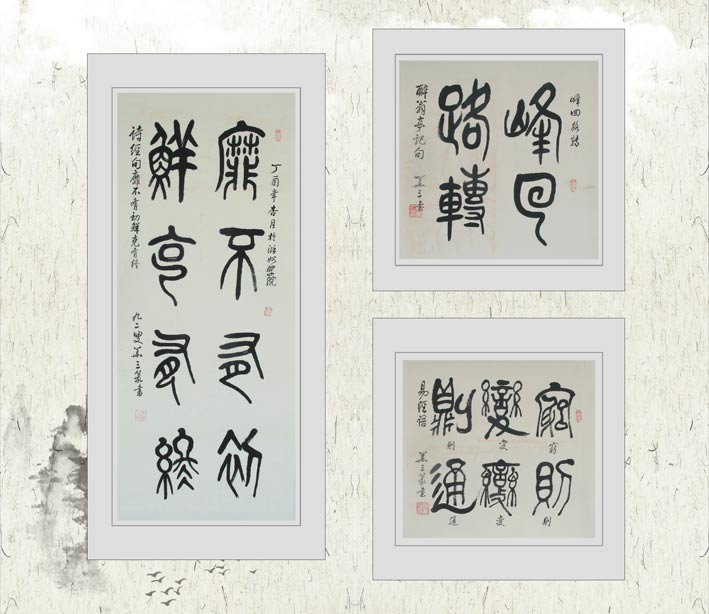 靡不有初
鮮克有終
丁酉年杏月於
詩經句靡不有初鮮克有終
九二叟
三篆書
峰回路轉
峰回
路轉
醉翁亭記句
三書
窮則
變變
則通
窮
則
變
變
則
通
易經語
三篆書